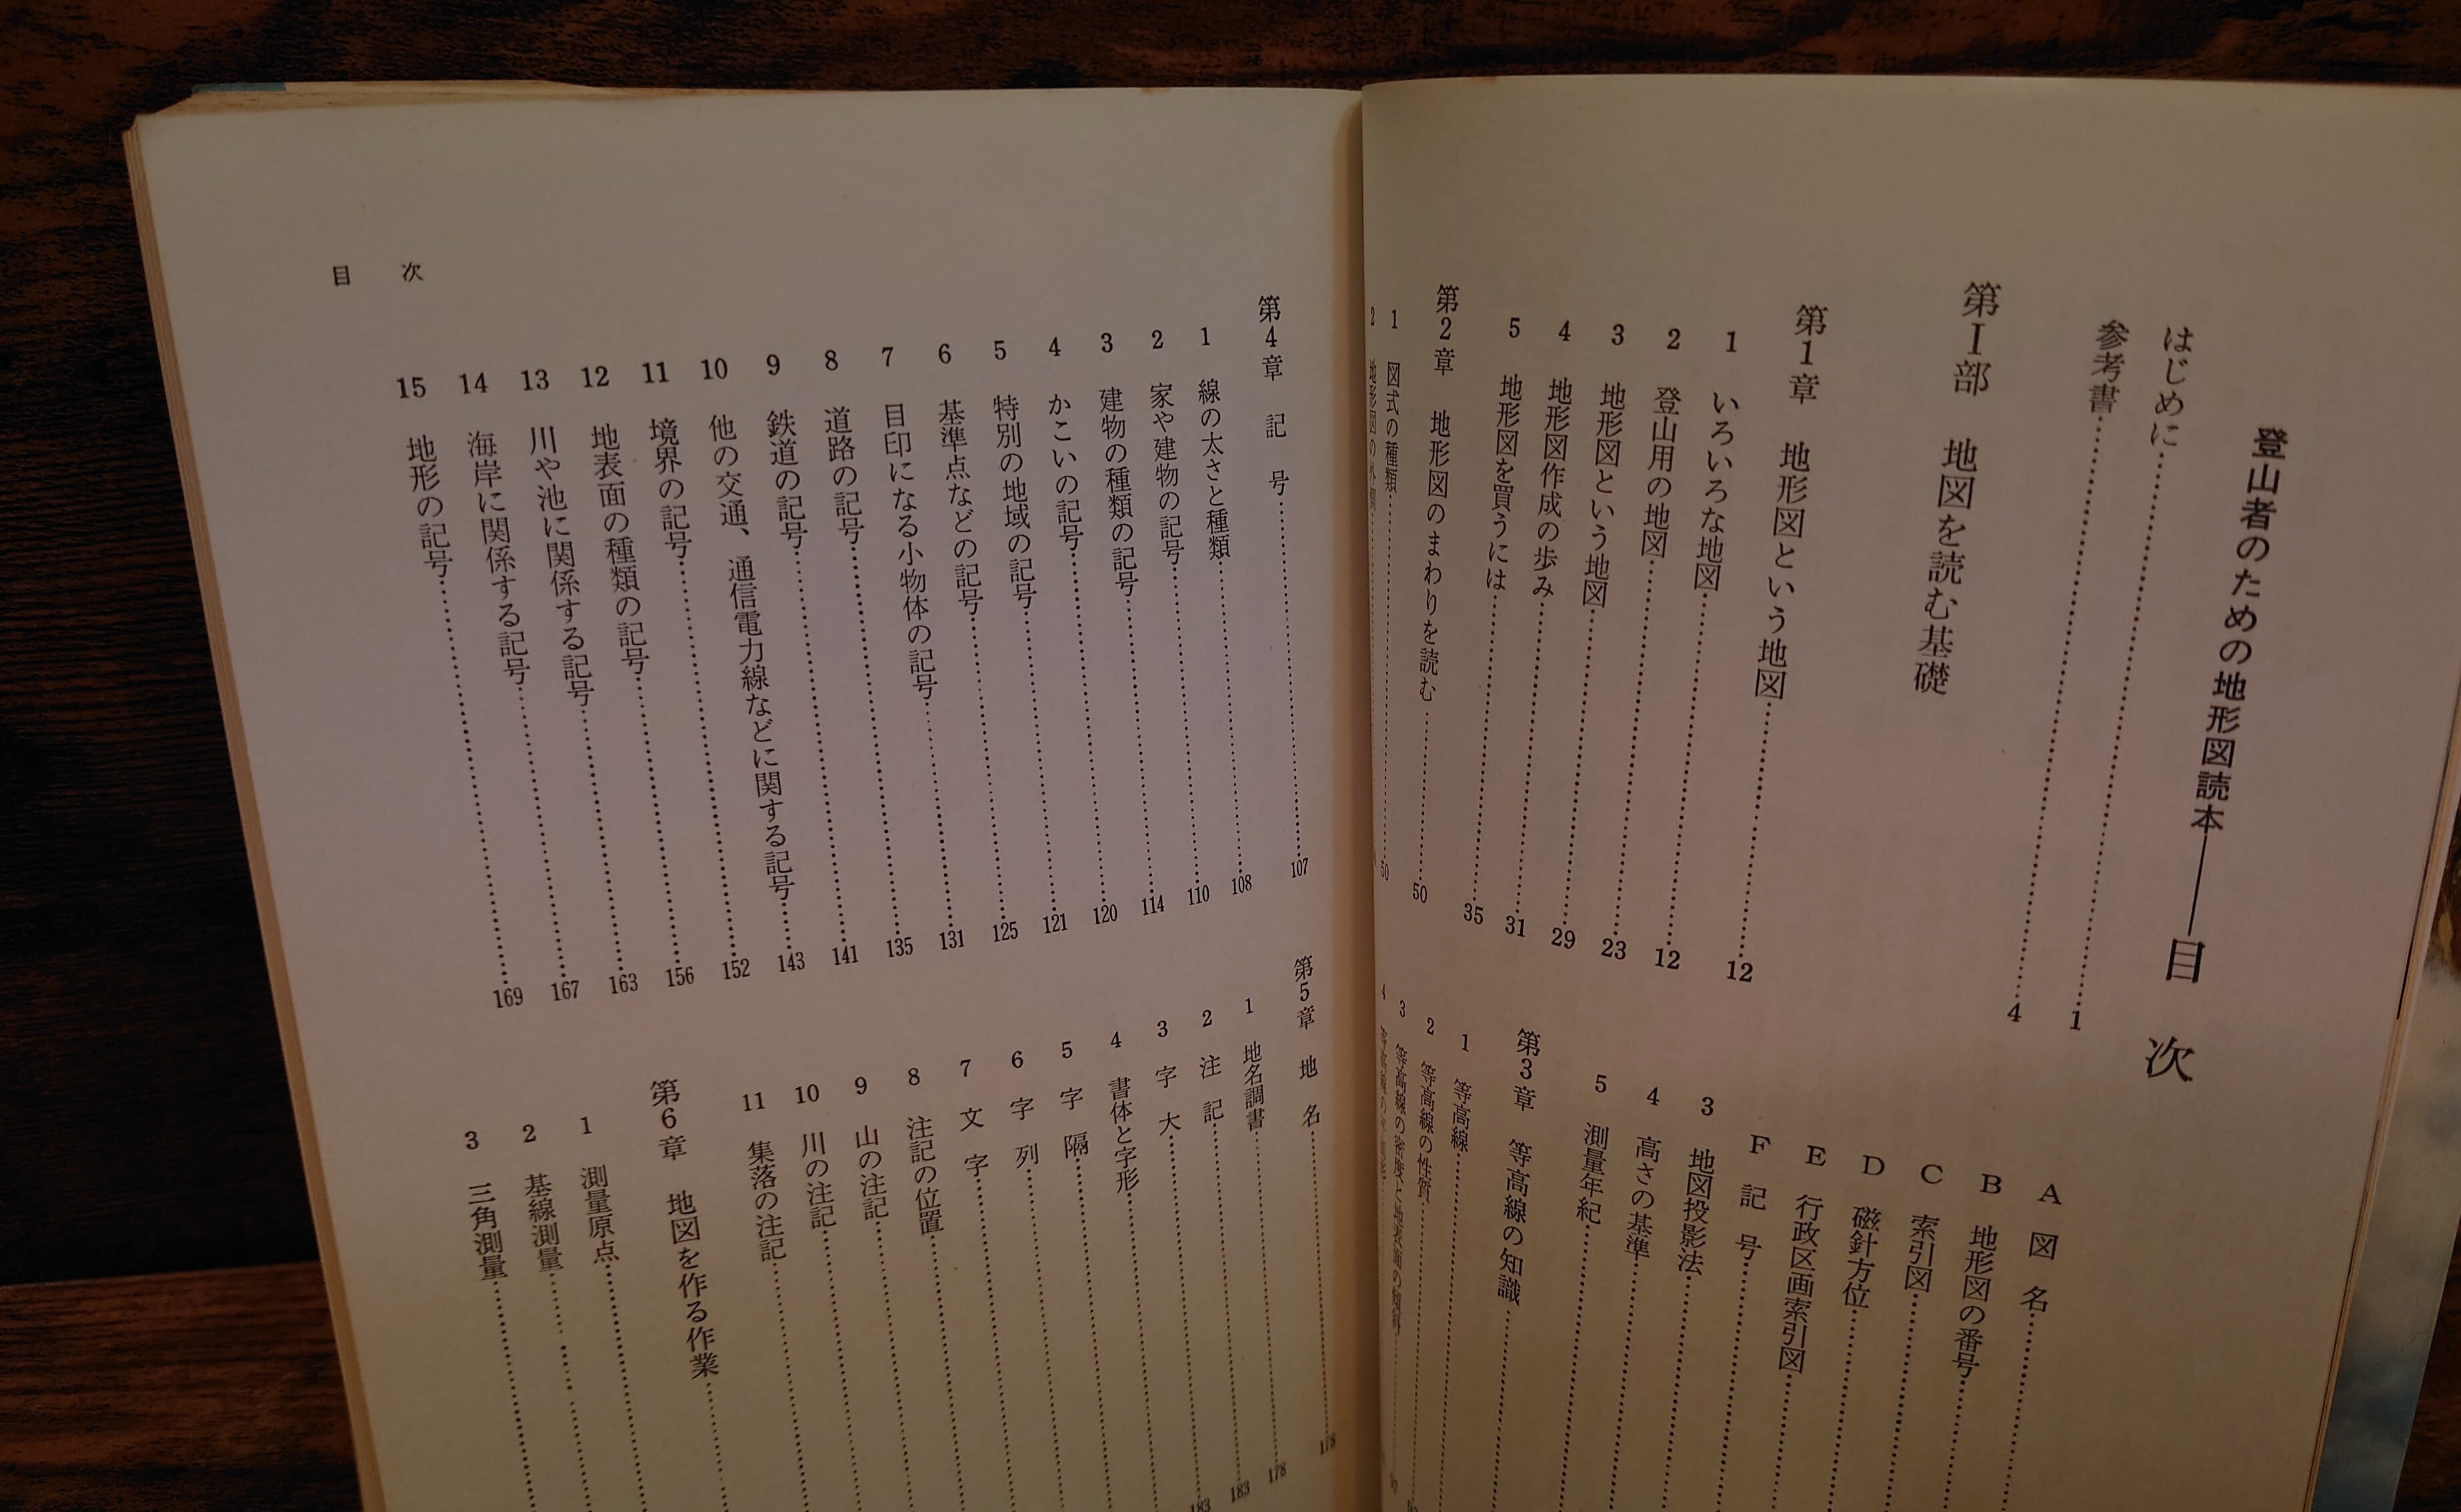 登山者のための地形図読本――目次
はじめに 1
参考書 4
第Ⅰ部 地図を読む基礎
第1章 地形図という地図 12
1 いろいろな地図 12
2 登山用の地図 23
3 地形図という地図 29
4 地形図作成の歩み 31
5 地形図を買うには 35
第2章 地形図のまわりを読む 50
1 図式の種類 50
2 地形図の
A 図名
B 地形図の番号
C 索引図
D 磁針方位
E 行政区画索引図
F 記号
3 地図投影法
4 高さの基準
5 測量年紀
第3章 等高線の知識
1 等高線
2 等高線の性質
3 等高線の密度と地表面の傾斜
4 等高線の
目次
第4章 記号 107
1 線の太さと種類 108
2 家や建物の記号 110
3 建物の種類の記号 114
4 かこいの記号 120
5 特別の地域の記号 121
6 基準点などの記号 125
7 目印になる小物体の記号 131
8 道路の記号 135
9 鉄道の記号 141
10 他の交通、通信電力線などに関する記号 143
11 境界の記号 152
12 地表面の種類の記号 156
13 川や池に関係する記号 163
14 海岸に関係する記号 167
15 地形の記号 169
第5章 地名 178
1 地名調書 178
2 注記 183
3 字大 183
4 書体と字形
5 字隔
6 字列
7 文字
8 注記の位置
9 山の注記
10 川の注記
11 集落の注記
第6章 地図を作る作業
1 測量原点
2 基線測量
3 三角測量